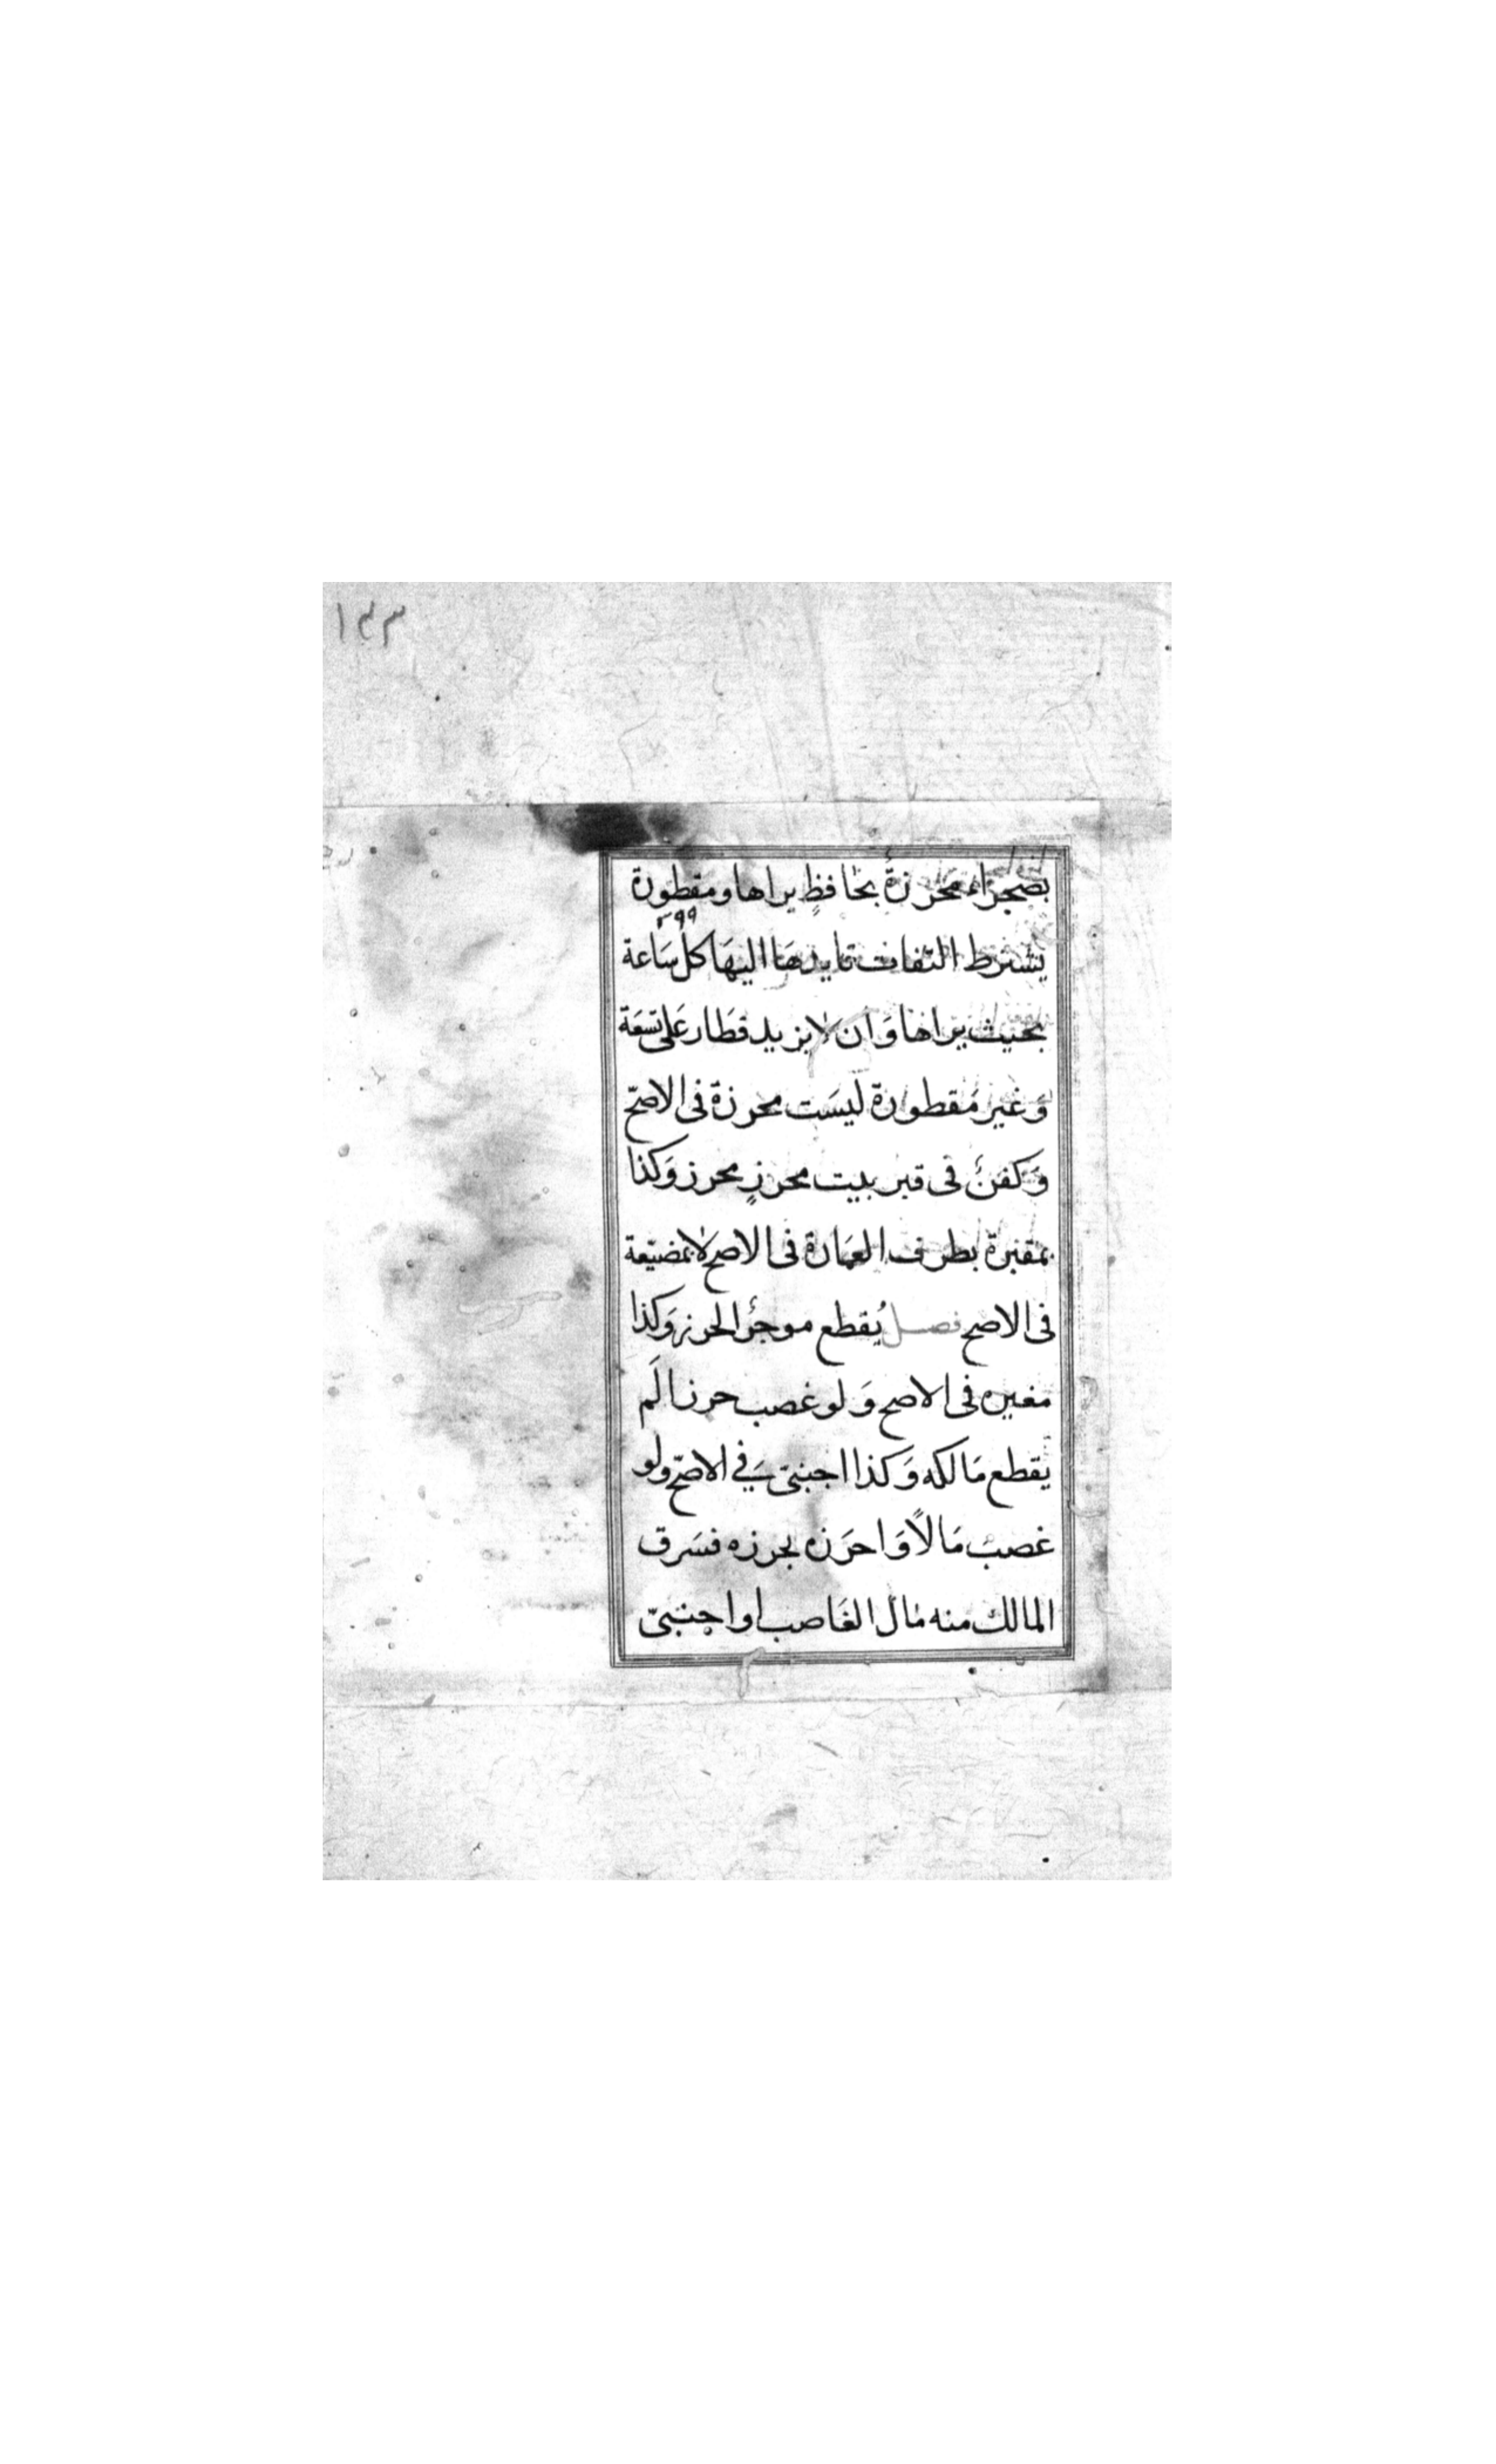 ١٤٣
بصحراء محرزةٌ بحافظٍ يراها ومقطورة
يشترط التفات قايدهَا اليهَا كلّ سَاعة
بحيث يراها وَان لا يزيد قطَار عَلى تسعَة
وَغير مَقطورة ليسَت محرزة فى الاصحّ
وَكفنٌ فى قبر ببيت محرزٍ محرز وَكذا
بمقبرة بطرف العمَارة فى الاصح لا بمضيّعة
فى الاصح فصل يُقطع موجرُ الحرز وَكذا
مغيره فى الاصح وَلو غصب حرزا لَم
يقطع مَالكه وَكذا اجنبىّ في الاصحّ ولو
غصبَ مَالاً وَاحرَزه بحرزه فسَرق
المالك منه مال الغَاصب او اجنبىّ